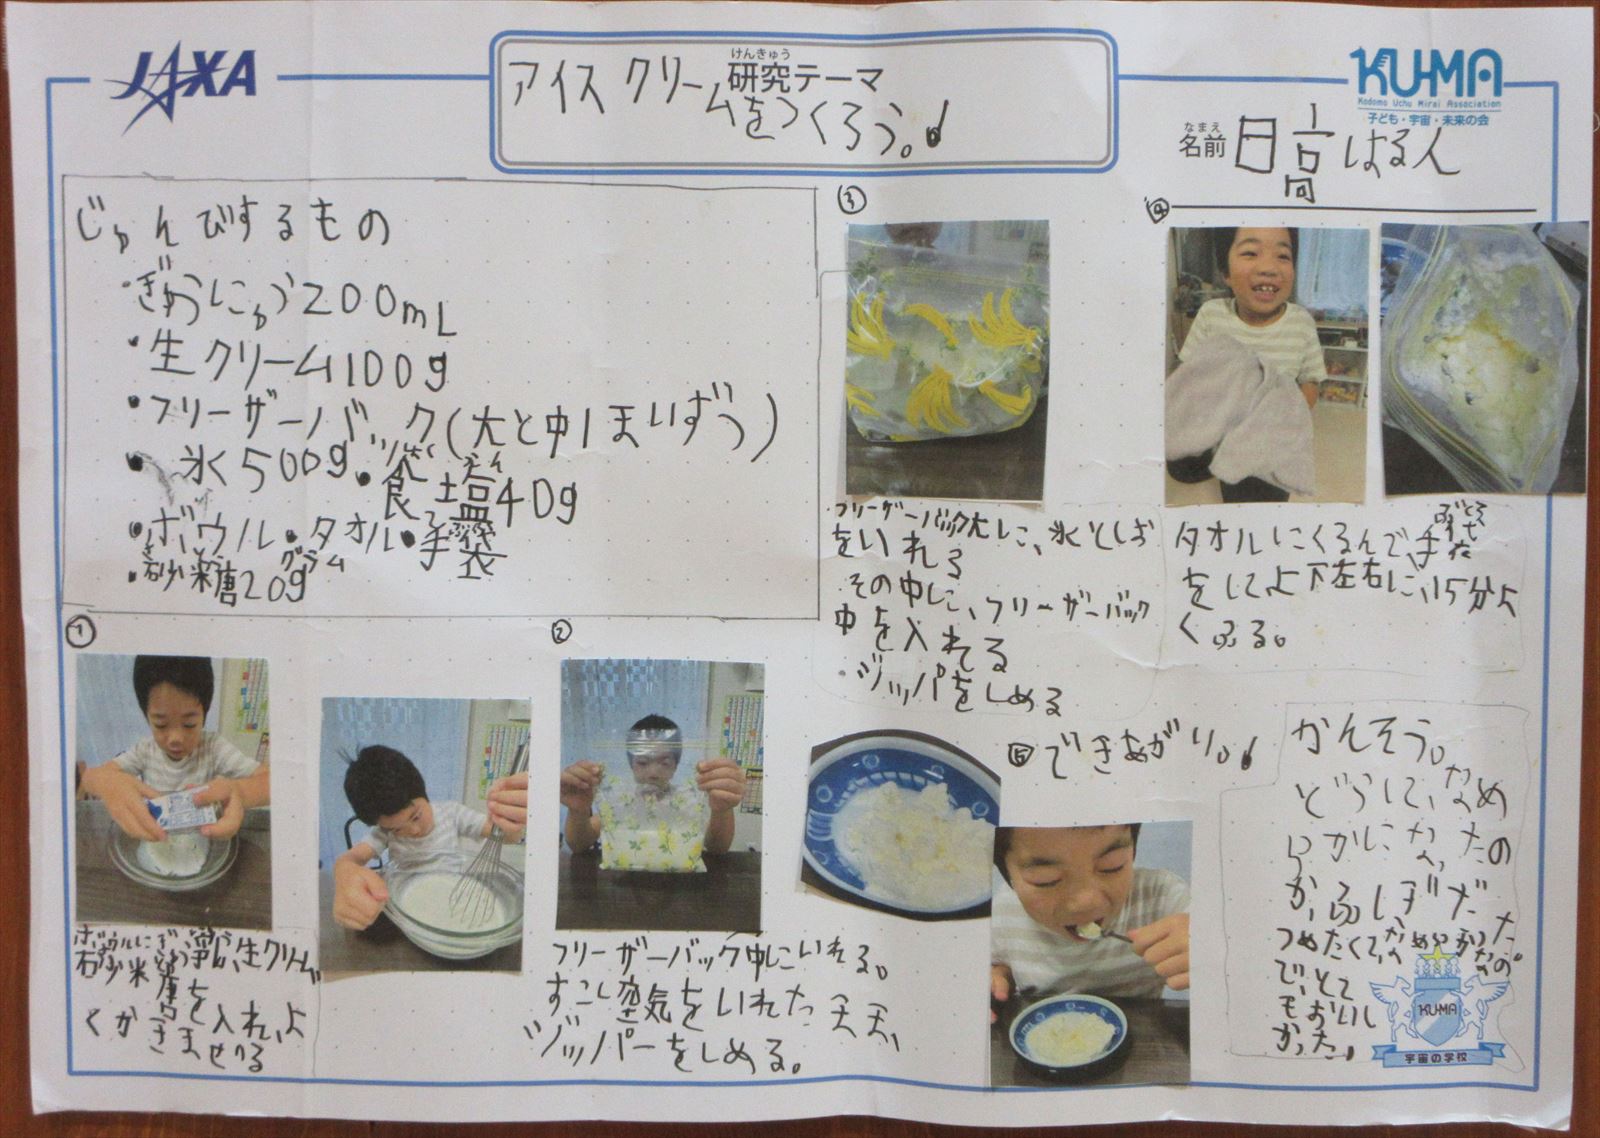 JAXA
けんきゅう
研究テーマ
アイスクリー
ムをつくろう。!
KU-MA
Kodomo Uchu Mirai Association
子ども・宇宙・未来の会
なまえ
名前 日高はる人
じゅんびするもの
・ぎゅうにゅう200mL
・生クリーム100g
・フリーザーバック(大と中1まいずつ)
・氷500g・食塩40g
・ボウル・タオル・手袋
・砂糖20g
グラム
①
ボウルにぎゅう
生クリーム
砂糖を入れ、よ
くかきませる
②
フリーザーバック中にいれる。
すこし空気をいれた
ジッパーをしめる。
③
フリーザーバック大に、氷としお
をいれる
その中に、フリーザーバック
中を入れる
・ジッパをしめる
④
タオルにくるんで、手
ぶくろ
をして上下左右に、15分よ
くふる。
⑤できあがり。!
かんそう。
どうして、なめ
らかになったの
か、ふしぎだ
つめたくて、
で、とて
もおいし
かった!
KU-MA
宇宙の学校